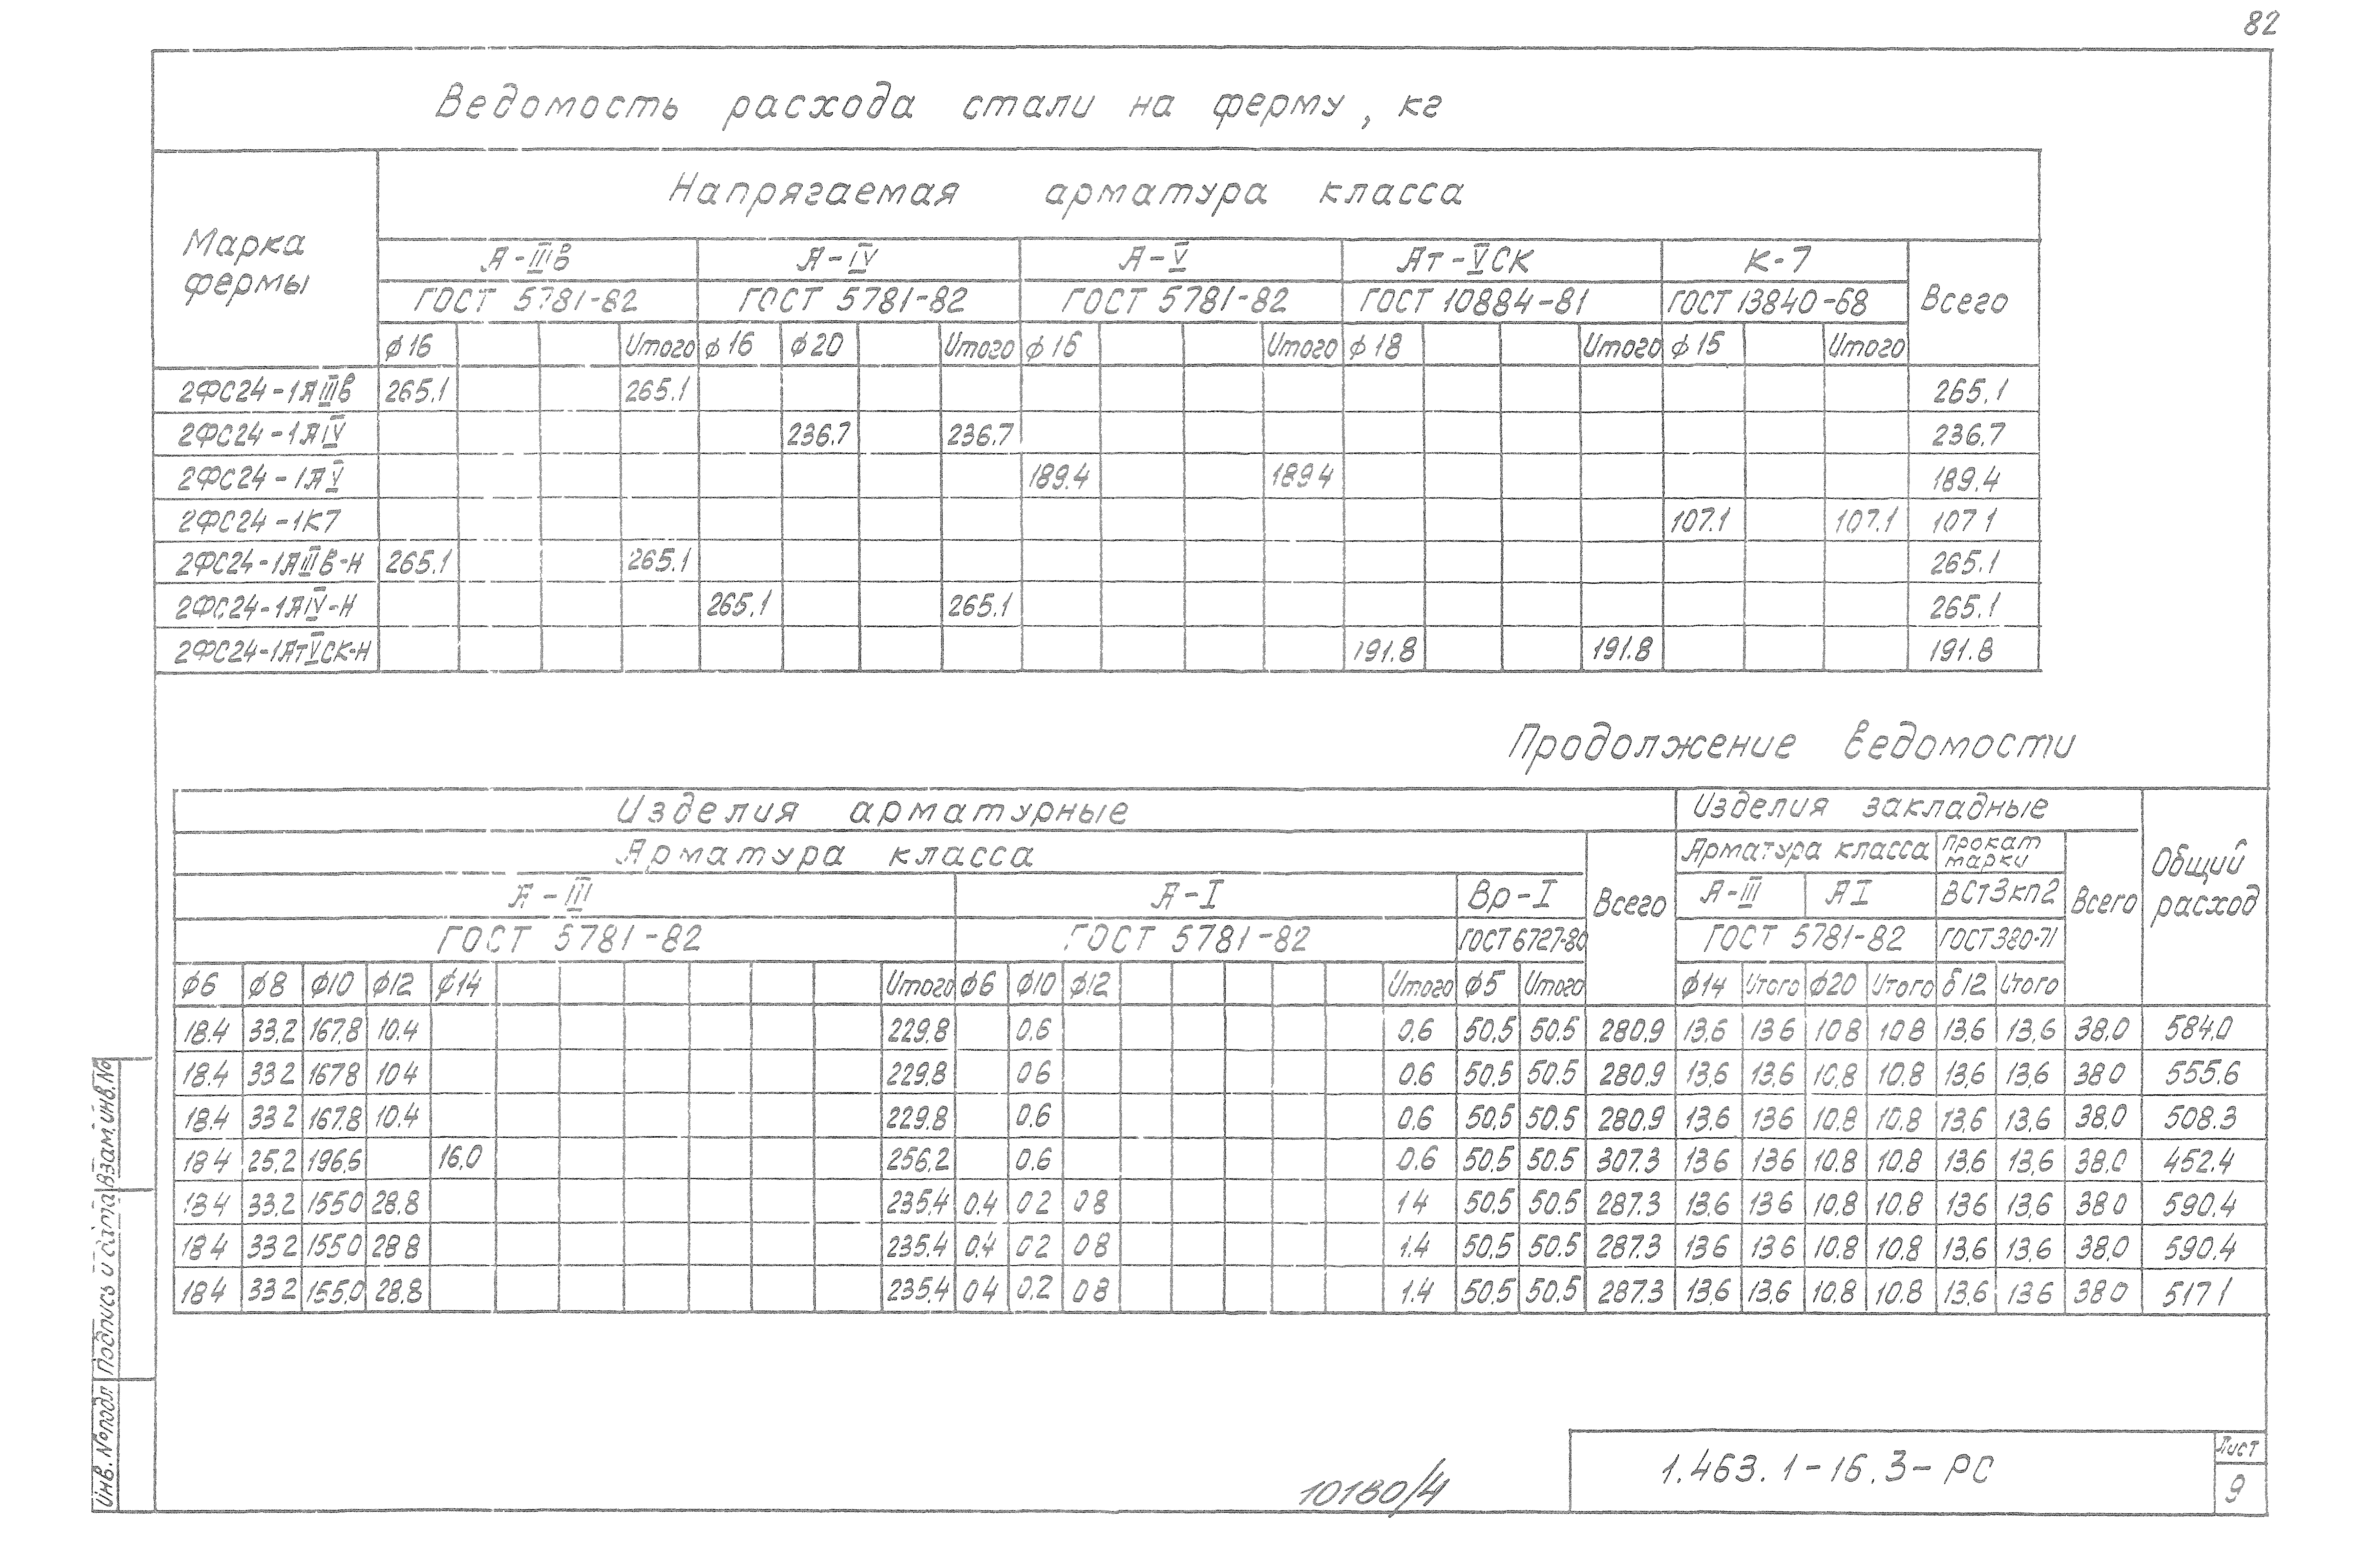 82
Ведомость расхода стали на ферму, кг
Марка фермы
Напрягаемая арматура класса
А-IIIв А-IV А-V Ат-VСК К-7 Всего
ГОСТ 5781-82 ГОСТ 5781-82 ГОСТ 5781-82 ГОСТ 10884-81 ГОСТ 13840-68
ф16 Итого ф16 ф20 Итого ф16 Итого ф18 Итого ф15 Итого
2ФС24-1АIIIв 265.1 265.1 265.1
2ФС24-1АIV 236.7 236.7 236.7
2ФС24-1АV 189.4 189 4 189.4
2ФС24-1К7 107.1 107.1 107 1
2ФС24-1АIIIв-Н 265.1 265.1 265.1
2ФС24-1АIV-Н 265.1 265.1 265.1
2ФС24-1АтVСК-Н 191.8 191.8 191.8
Продолжение ведомости
Изделия арматурные Изделия закладные Общий расход
Арматура класса Всего Арматура класса Прокат марки Всего
А-III А-I Вр-I А-III АI ВСт3кп2
ГОСТ 5781-82 ГОСТ 5781-82 ГОСТ 6727-80 ГОСТ 5781-82 ГОСТ 380-71
ф6 ф8 ф10 ф12 ф14 Итого ф6 ф10 ф12 Итого ф5 Итого ф14 Итого ф20 Итого δ12 Итого
18.4 33.2 167.8 10.4 229.8 0.6 0.6 50.5 50.5 280.9 13.6 13 6 10 8 10 8 13.6 13.6 38.0 584.0
18.4 33 2 167 8 10 4 229.8 0 6 0.6 50.5 50.5 280.9 13.6 13.6 10.8 10.8 13.6 13.6 38 0 555.6
18.4 33 2 167.8 10.4 229.8 0.6 0.6 50.5 50.5 280.9 13.6 13 6 10.8 10.8 13.6 13.6 38.0 508.3
18 4 25.2 196.6 16.0 256.2 0.6 0.6 50.5 50.5 307.3 13 6 13 6 10.8 10.8 13.6 13.6 38.0 452.4
18 4 33.2 155 0 28.8 235.4 0.4 0 2 0 8 1 4 50.5 50.5 287.3 13.6 13 6 10.8 10.8 13 6 13.6 38 0 590.4
18 4 33 2 155 0 28 8 235.4 0.4 0 2 0 8 1.4 50.5 50.5 287.3 13 6 13 6 10.8 10.8 13.6 13.6 38.0 590.4
18 4 33 2 155.0 28.8 235.4 0 4 0.2 0 8 1.4 50.5 50.5 287.3 13.6 13.6 10.8 10.8 13.6 13 6 38 0 517 1
Инв. № подл Подпись и дата Взам. инв. №
10180/4
1.463.1-16.3-РС
Лист
9